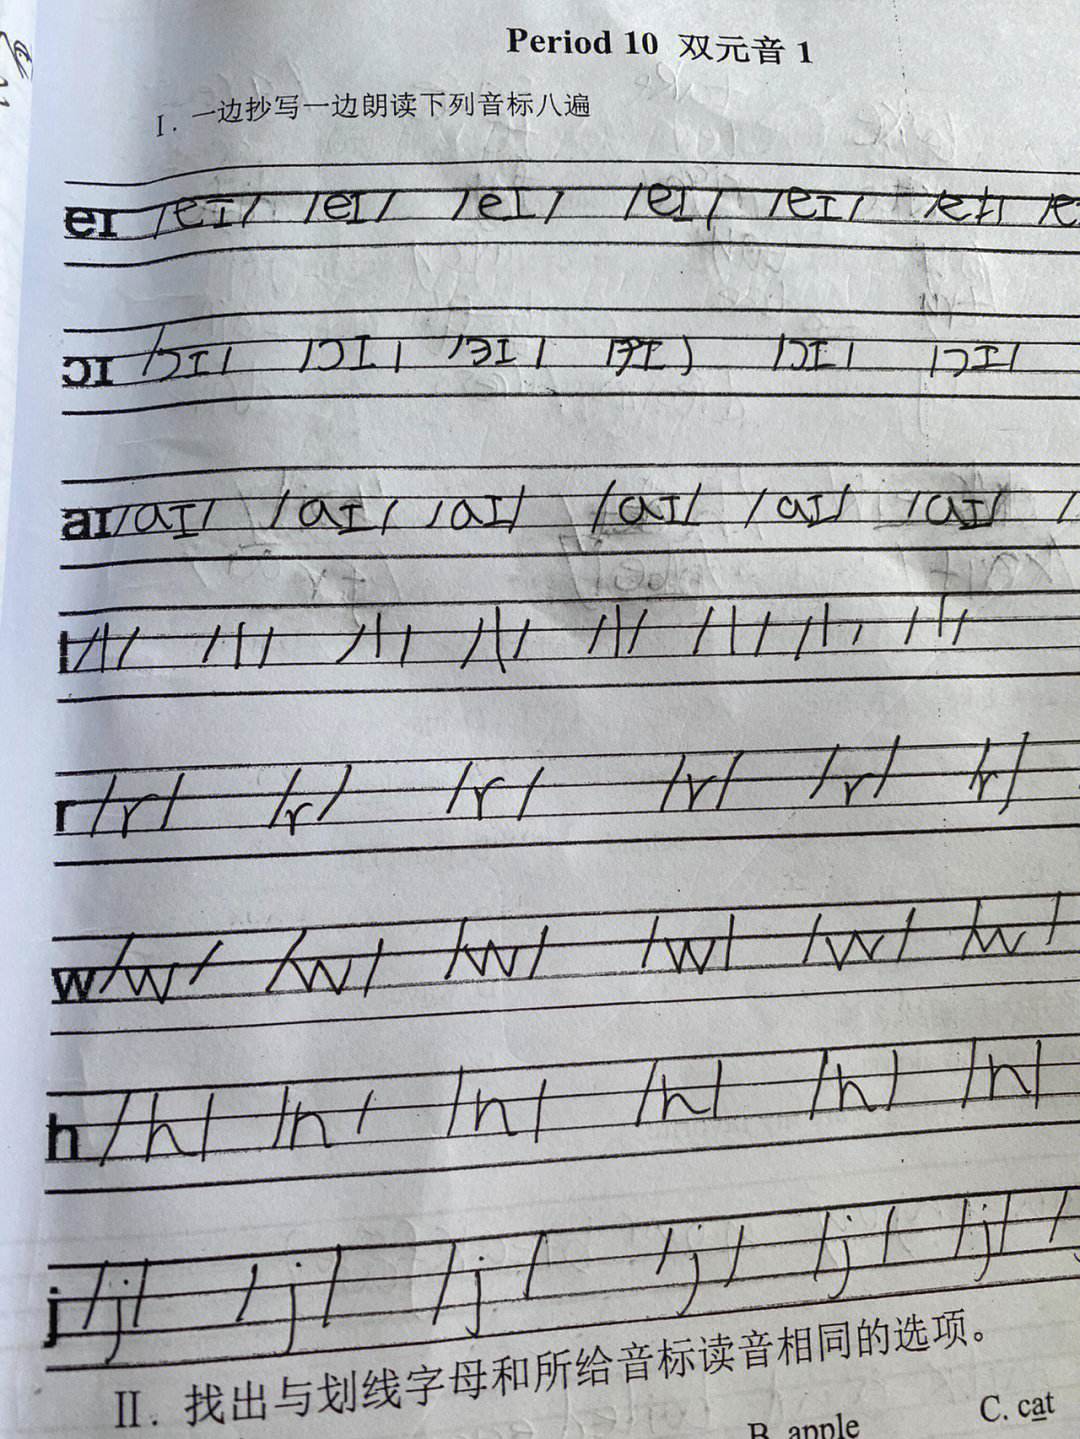 Period 10 双元音 1
I. 一边抄写一边朗读下列音标八遍
eɪ /eɪ/ /eɪ/ /eɪ/ /eɪ/ /eɪ/ /eɪ/
ɔɪ /ɔɪ/ /ɔɪ/ /ɔɪ/ /ɔɪ/ /ɔɪ/ /ɔɪ/
aɪ /aɪ/ /aɪ/ /aɪ/ /aɪ/ /aɪ/ /aɪ/
l /l/ /l/ /l/ /l/ /l/ /l/ /l/ /l/
r /r/ /r/ /r/ /r/ /r/ /r/
w /w/ /w/ /w/ /w/ /w/ /w/
h /h/ /h/ /h/ /h/ /h/ /h/
j /j/ /j/ /j/ /j/ /j/ /j/
II. 找出与划线字母和所给音标读音相同的选项。
B. apple C. cat